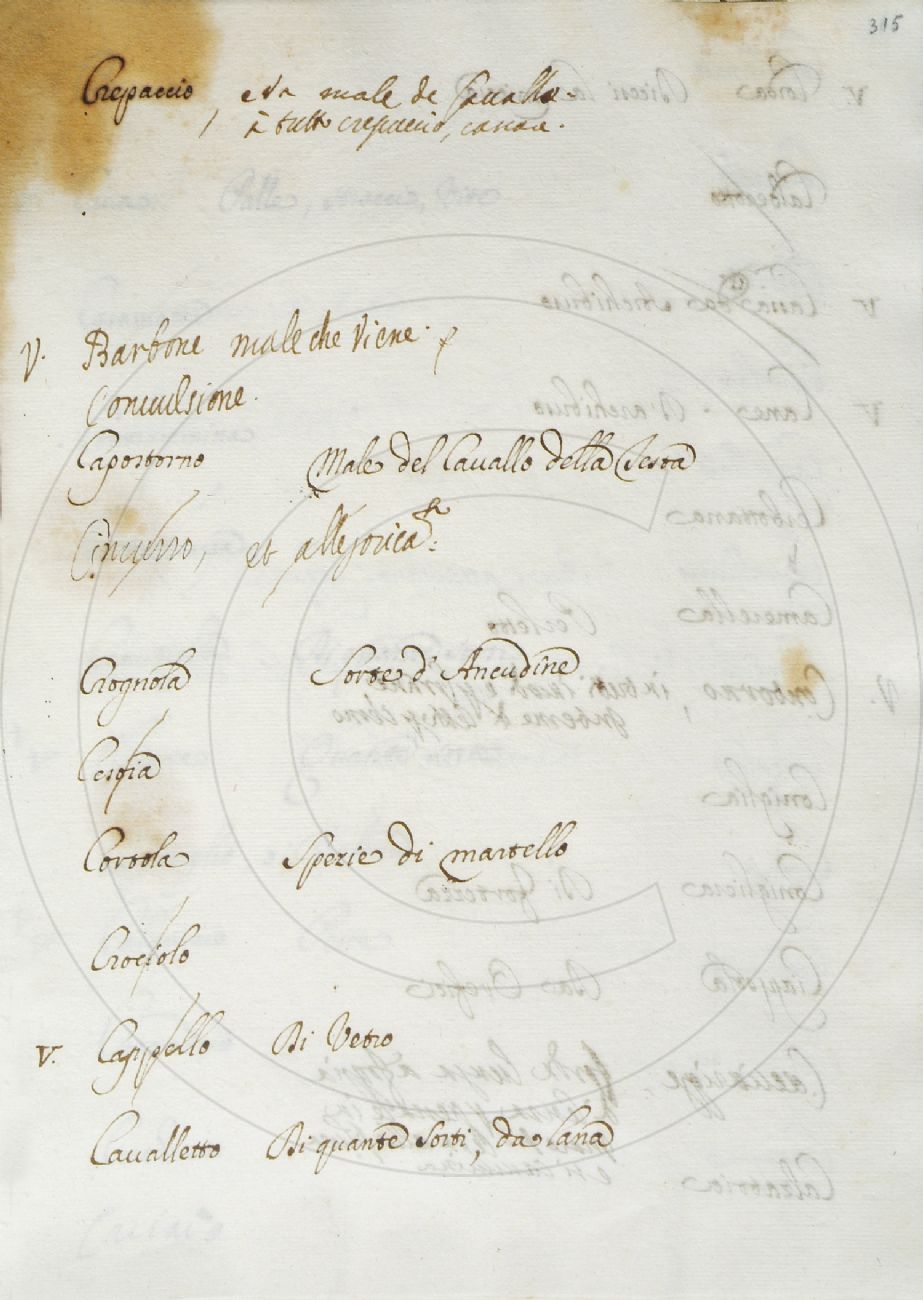 315
Crepaccio, male de Cavallo.
è tutto crepaccio,
V. Barbone male che Viene.
Conuulsione.
Capostorno Male del Cauallo della Testa
Cimurro, et allegorica
Ciognola Sorte d'Ancudine
Cesoia
Cortola Spezie di martello
Crociolo
V. Cappello Di Vetro
Caualletto Di quante sorti, da lana